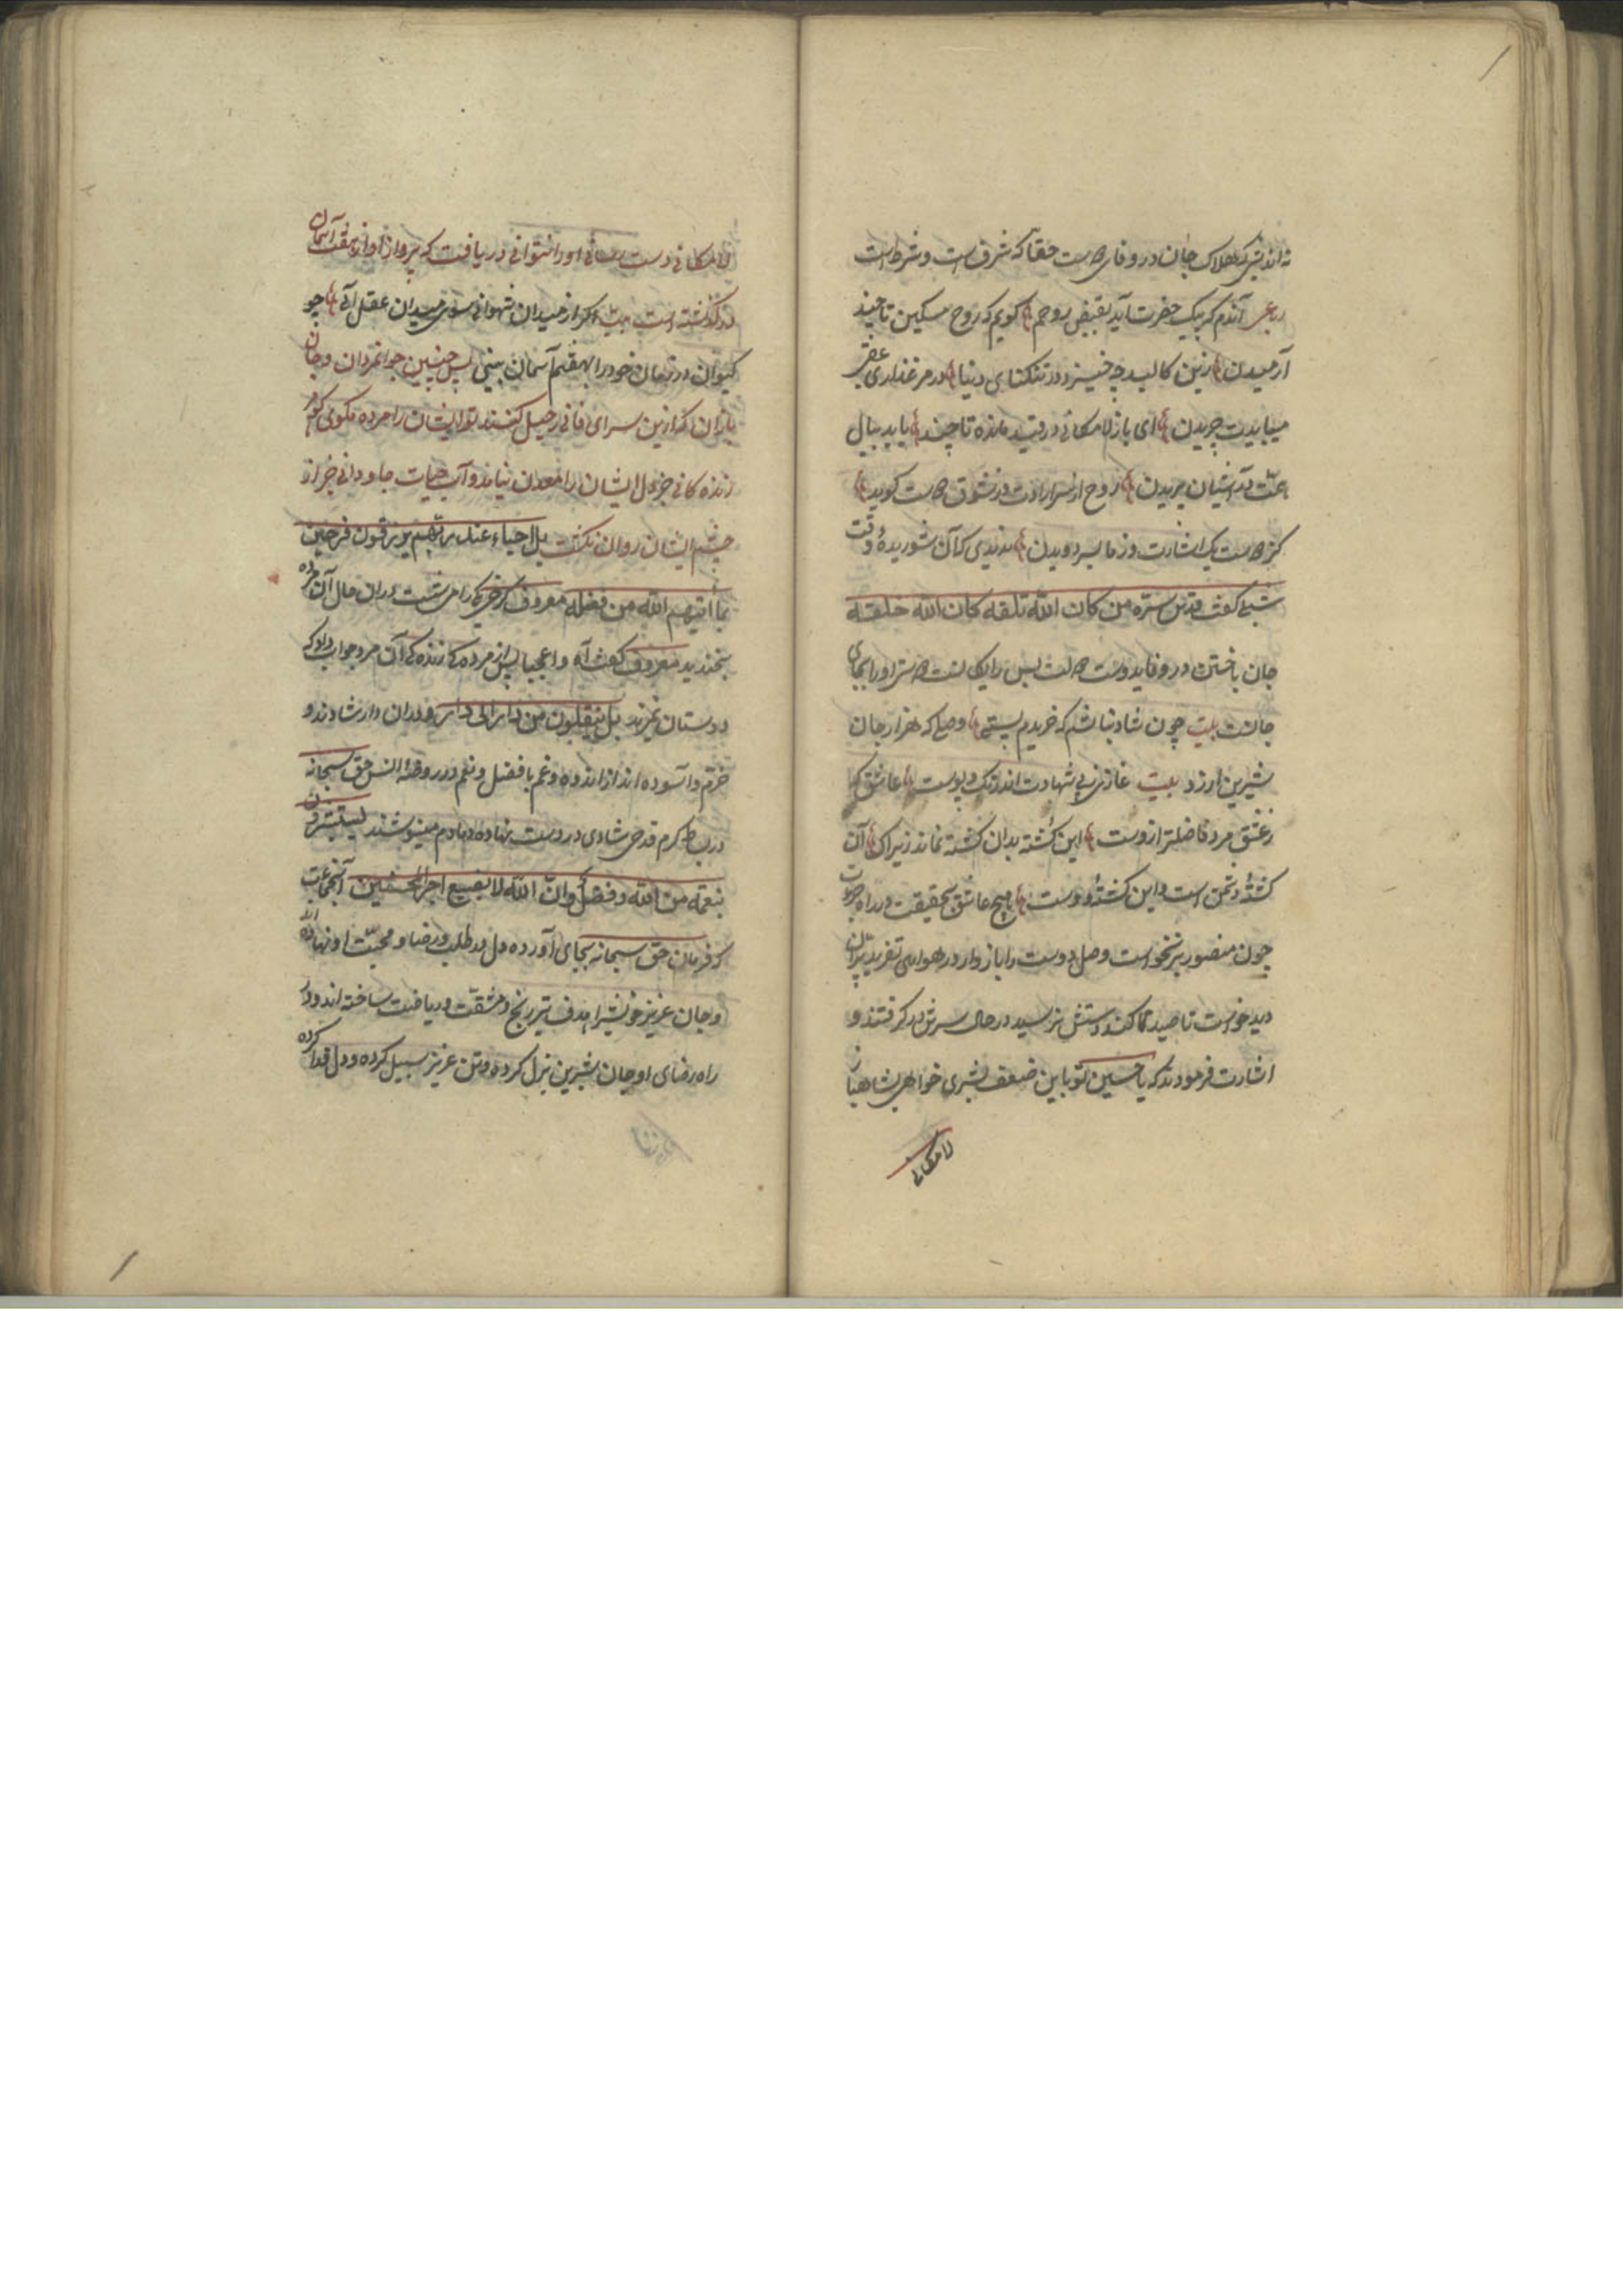 نه اندیشد هلاک جان در وفای دوست حقا که شرف است و شرط است
رباعی آندم که پیک حضرت آید بقبض روحم گویم که روح مسکین تا چند
آرمیدن زین کالبد چه خیزد در تنکنای دنیا در مرغزار عقبی
میبایدت چریدن ای باز لامکانی در قید مانده تا چند باید ببال
همت در آشیان پریدن روح از سر ارادت در شوق دوست گوید
کز دوست یک اشارت وز ما بسر دویدن ندیدی که آن شوریدهٔ وقت
شبلی گفت قدس سره من کان الله تلفه کان الله خلفه
جان باختن در وفای دوست را او را بجای
جانست بیت چون شاد نباشم که خریدم وصلی که هزار جان
شیرین ارزد بیت غازی بپی شهادت اندر تک و پوست عاشق که
ز عشق مرد فاضلتر ازوست این کشته بدان کشته نماند زیراک آن
کشتهٔ دشمن است و این کشتهٔ دوست هیچ عاشق بحقیقت در راه
چون منصور برنخواست وصل دوست را باز وار در هوای تفرید پران
دید خواست تا صید کند دستش نرسید در حال سرش برگرفتند و
اشارت فرمودند که یا حسین تو باین ضعف بشری خواهی بشاهباز
لامکانی
لامکانی دست او را نتوانی دریافت که پرواز او از هفت آسمان
درگذشته است بیت اگر از میدان شهوانی سوی میدان عقل آئی چو
کیوان در زمان خود را بهفتم آسمان بینی پس چنین جوانمردان و جان
بازان که ازین سرای فانی رحیل کنند تو ایشان را مرده مگوی که
زنده کانی جز دل ایشان را معدن نیابد و آب حیات جاودانی جز از
چشم ایشان روان نگشت بل احیاء عند ربهم یرزقون فرحین
بما آتیهم الله من فضله معروف کرخی یکی را می شست در آن حال آن مرده
بخندید معروف گفت آه و اعجبا پس از مرده کی زنده کی آن مرد جواب داد که
دوستان نمیرند بل ینقلبون من دار الی دار و در آن دار شادند و
خرم و آسوده اند از اندوه و غم با فضل و نعم در روضهٔ انس حق سبحانه
در بساط کرم قدح شادی در دست نهاده دمادم مینوشند یستبشرون
بنعمة من الله وفضل وان الله لا یضیع اجر المحسنین آنجماعت
که فرمان حق سبحانه بجای آورده دل در طلب و رضا و محبت او نهاده اند
و جان عزیز خویش را هدف تیر رنج و مشقت و ریاضت ساخته اند و در
راه رضای او جان شیرین بذل کرده و تن عزیز سبیل کرده و دل فدا کرده